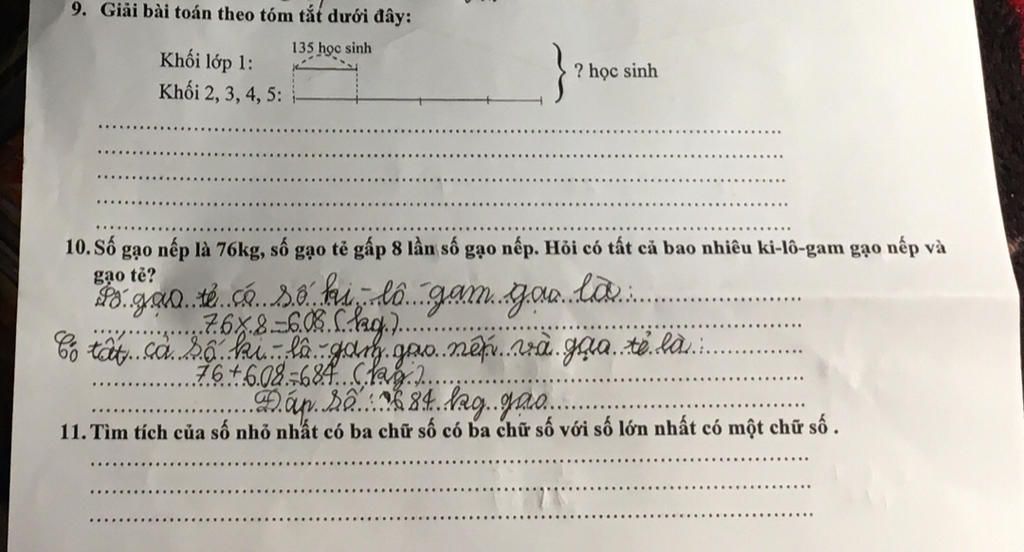 9. Giải bài toán theo tóm tắt dưới đây:
135 học sinh
Khối lớp 1:
? học sinh
Khối 2, 3, 4, 5:
10. Số gạo nếp là 76kg, số gạo tẻ gấp 8 lần số gạo nếp. Hỏi có tất cả bao nhiêu ki-lô-gam gạo nếp và
gạo tẻ?
Số gạo tẻ có số ki-lô-gam gạo là:
76×8=608 (kg)
Có tất cả số ki-lô-gam gạo nếp và gạo tẻ là:
76+608=684 (kg)
Đáp số: 684 kg gạo
11. Tìm tích của số nhỏ nhất có ba chữ số có ba chữ số với số lớn nhất có một chữ số .